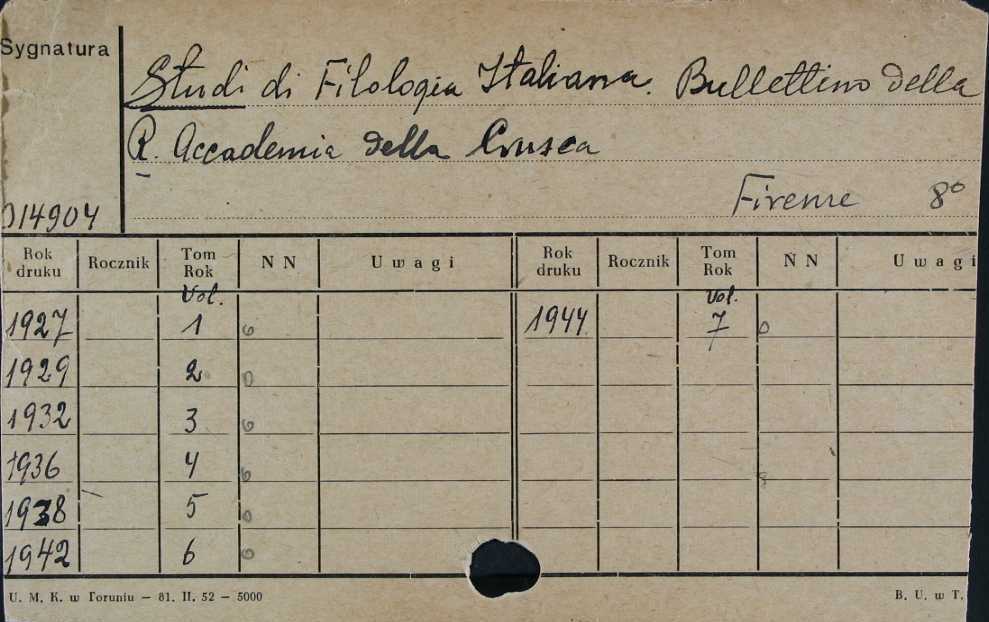 Sygnatura
Studi di Filologia Italiana. Bullettino della
R. Accademia della Crusca
Firenze 8°
014904
Rok druku Rocznik Tom Rok N N Uwagi Rok druku Rocznik Tom Rok N N Uwagi
Vol. Vol.
1927 1 0 1944 7 0
1929 2 0
1932 3 0
1936 4 0
1938 5 0
1942 6 0
U. M. K. w Toruniu — 81. II. 52 — 5000 B. U. w T.